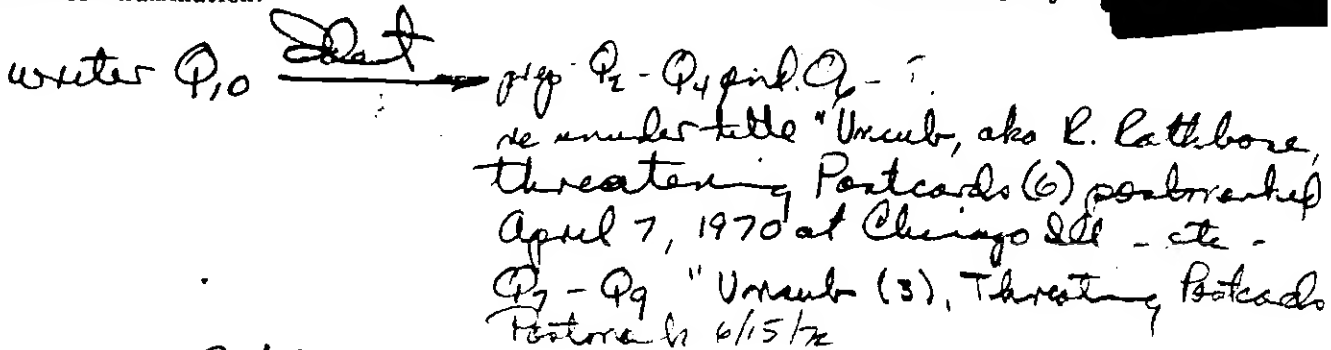 writer Q10 Ident prep Q2 - Q4 and Q6 -
re under title "Unsub, aka R. Rathbone,
threatening Postcards (6) postmarked
April 7, 1970 at Chicago Ill - etc -
Q7 - Q9 "Unsub (3), Threating Postcards
Postmark 6/15/72